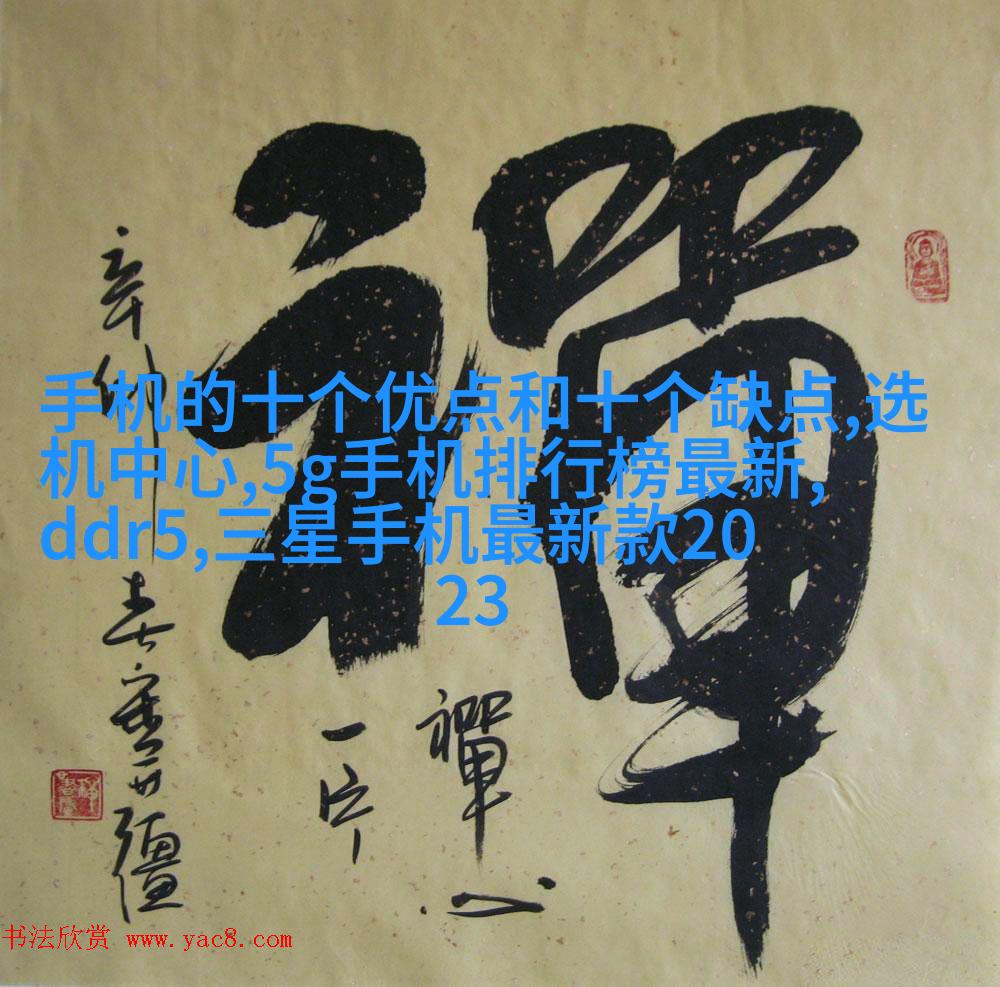 禪
手机的十个优点和十个缺点,选
机中心,5g手机排行榜最新,
ddr5,三星手机最新款20
23
禪心
一片
辛卯春
书法欣赏 www.yac8.com